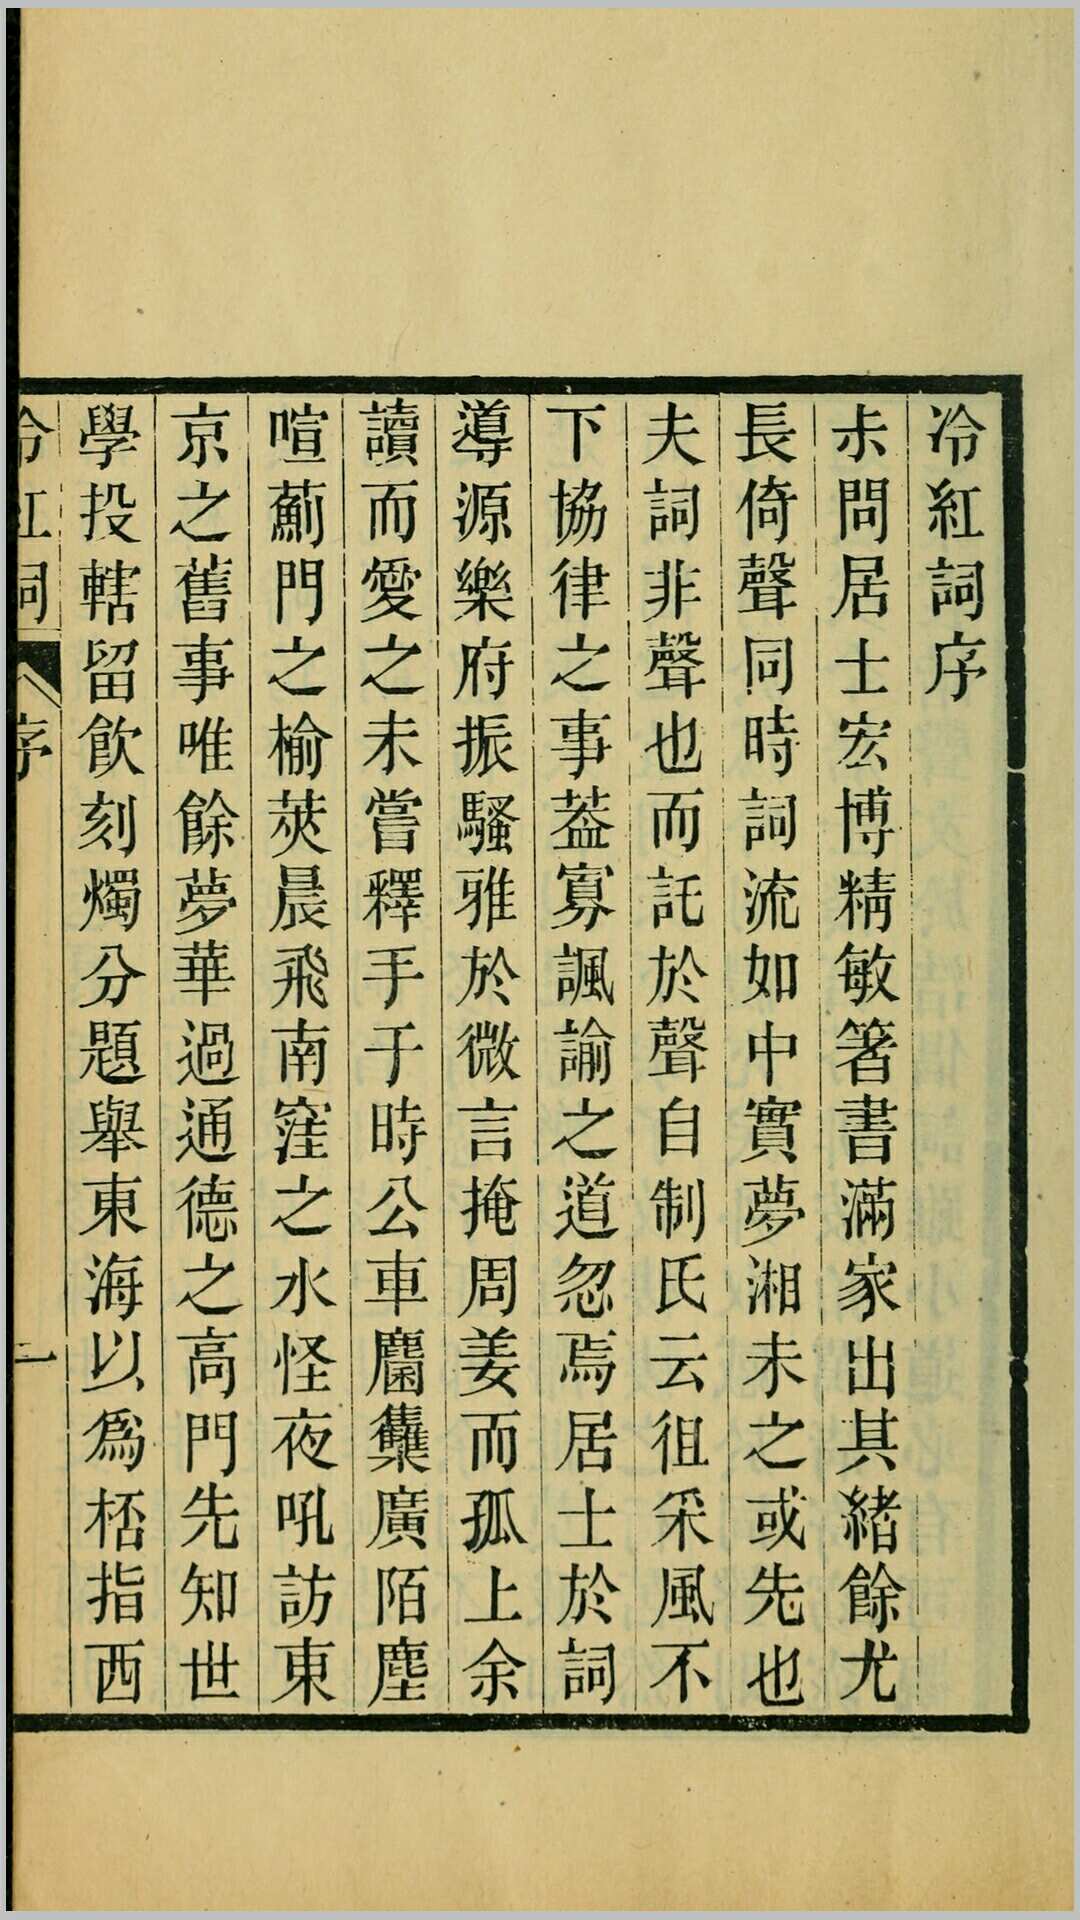 冷紅詞序
尗問居士宏博精敏箸書滿家出其緒餘尤
長倚聲同時詞流如中實夢湘未之或先也
夫詞非聲也而託於聲自制氏云徂采風不
下協律之事葢寡諷諭之道忽焉居士於詞
導源樂府振騷雅於微言掩周姜而孤上余
讀而愛之未嘗釋手于時公車麕雧廣陌塵
喧薊門之榆莢晨飛南窪之水怪夜吼訪東
京之舊事唯餘夢華過通德之高門先知世
學投轄留飮刻燭分題舉東海以爲桮指西
冷紅詞 序 一